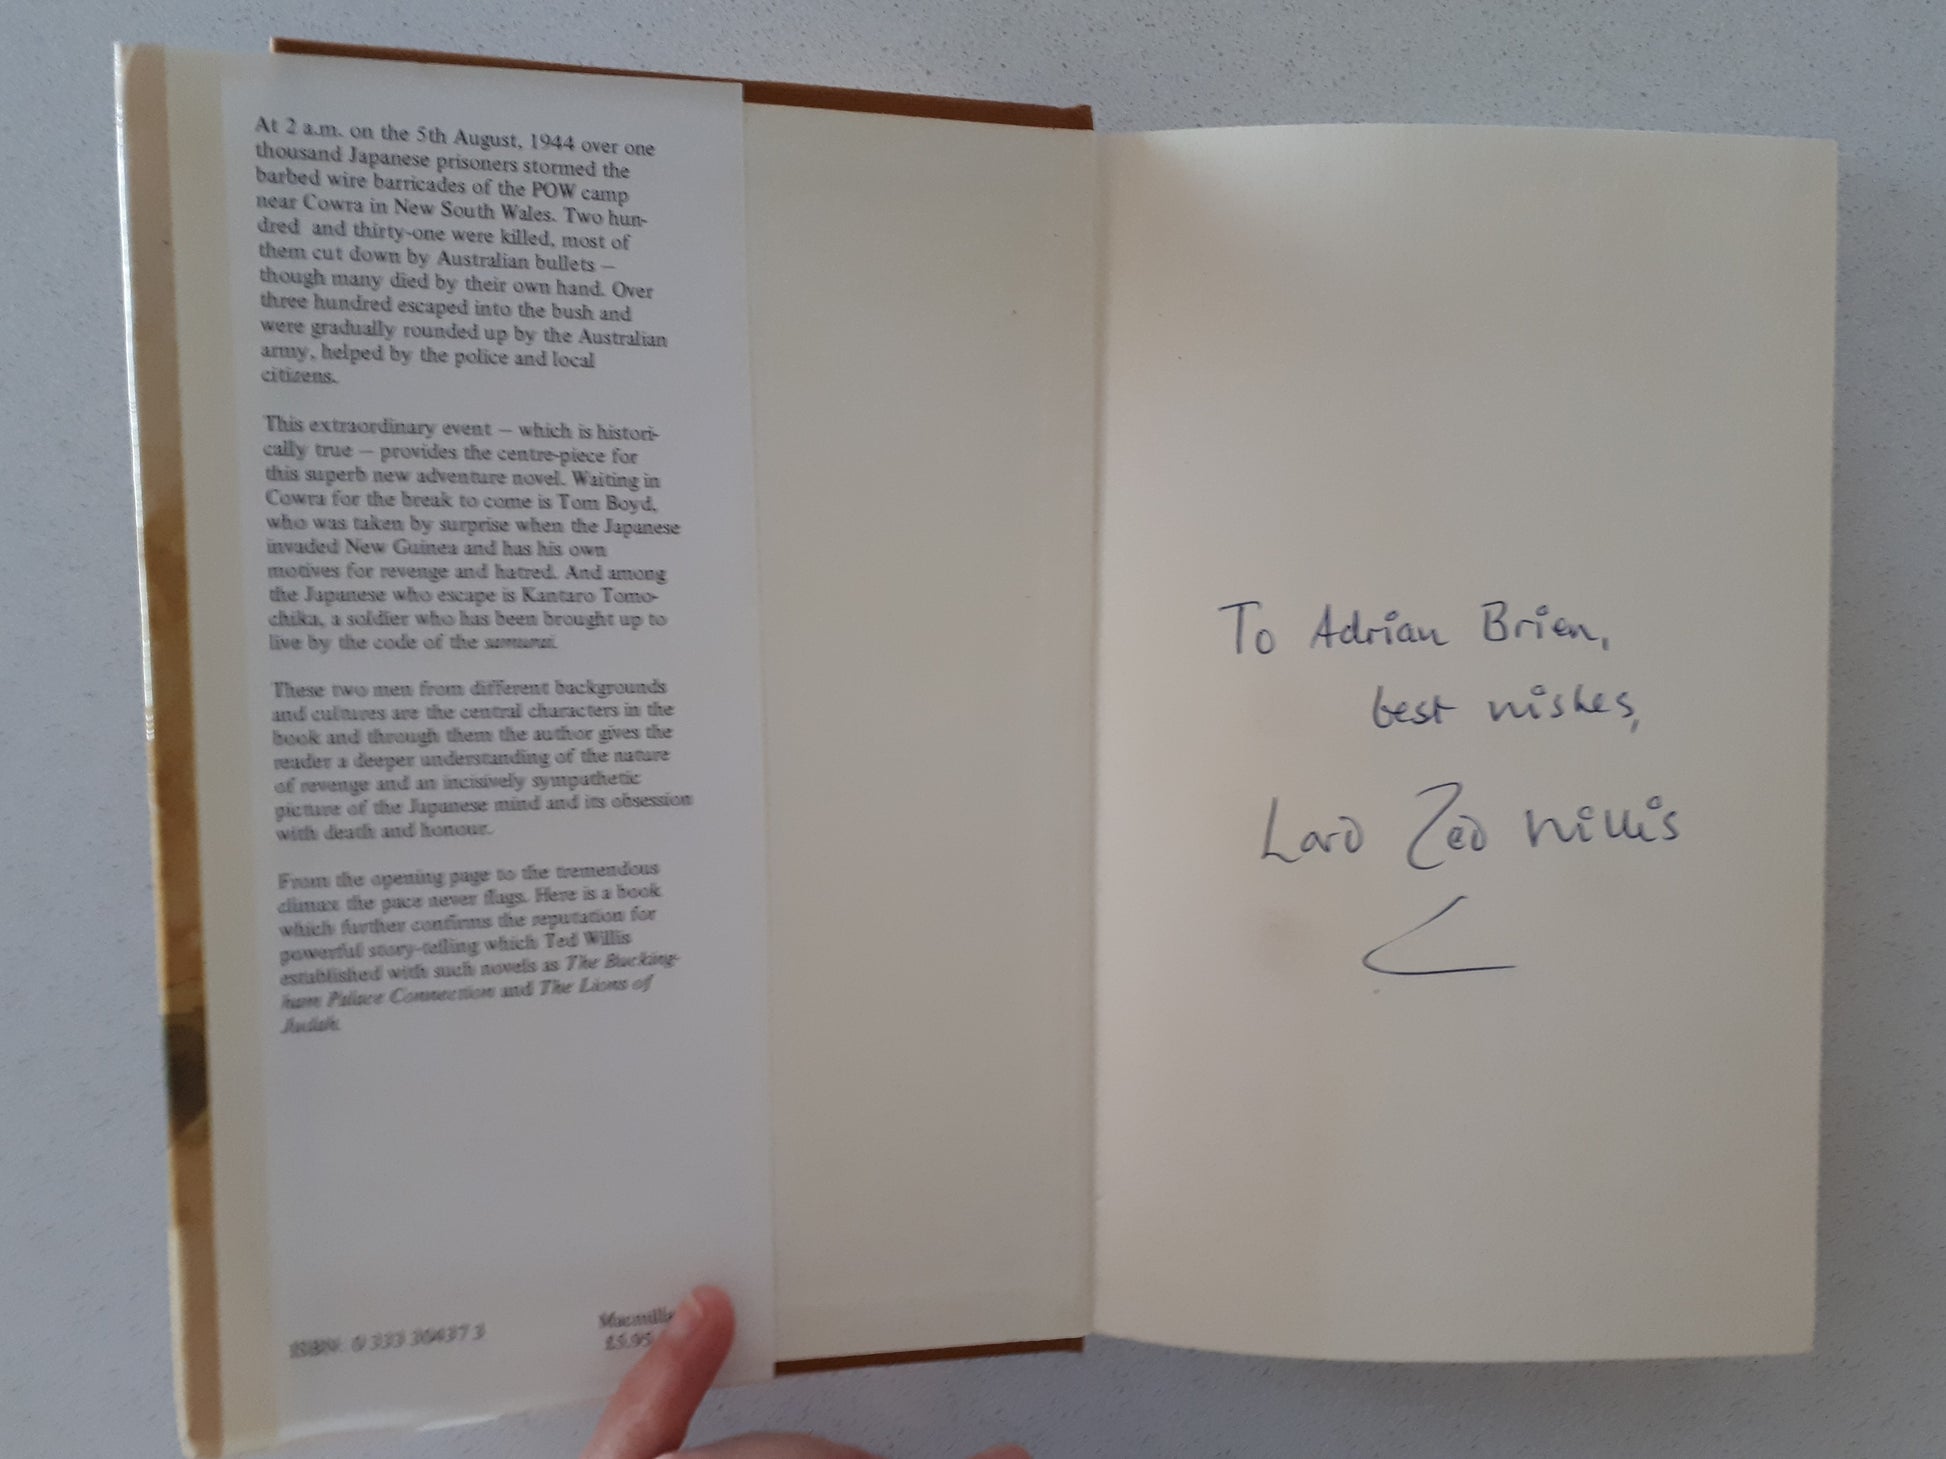 At 2 a.m. on the 5th August, 1944 over one
thousand Japanese prisoners stormed the
barbed wire barricades of the POW camp
near Cowra in New South Wales. Two hun-
dred and thirty-one were killed, most of
them cut down by Australian bullets –
though many died by their own hand. Over
three hundred escaped into the bush and
were gradually rounded up by the Australian
army, helped by the police and local
citizens.
This extraordinary event – which is histori-
cally true – provides the centre-piece for
this superb new adventure novel. Waiting in
Cowra for the break to come is Tom Boyd,
who was taken by surprise when the Japanese
invaded New Guinea and has his own
motives for revenge and hatred. And among
the Japanese who escape is Kantaro Tomo-
chika, a soldier who has been brought up to
live by the code of the samurai.
These two men from different backgrounds
and cultures are the central characters in the
book and through them the author gives the
reader a deeper understanding of the nature
of revenge and an incisively sympathetic
picture of the Japanese mind and its obsession
with death and honour.
From the opening page to the tremendous
climax the pace never flags. Here is a book
which further confirms the reputation for
powerful story-telling which Ted Willis
established with such novels as The Bucking-
ham Palace Connection and The Lions of
Judah.
ISBN: 0 333 30437 3
£5.95
To Adrian Brien,
best wishes,
Lord Ted Willis